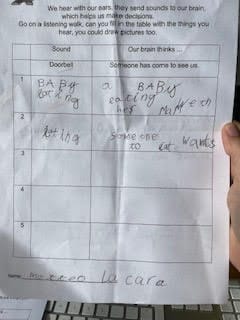 We hear with our ears, they send sounds to our brain,
which helps us make decisions.
Go on a listening walk, can you fill in the table with the things you
hear, you could draw pictures too.
Sound Our brain thinks ...
Doorbell Someone has come to see us.
1 BABy a BABy
eating
her
2 someone wants
to eat
3
4
5
Name la cara